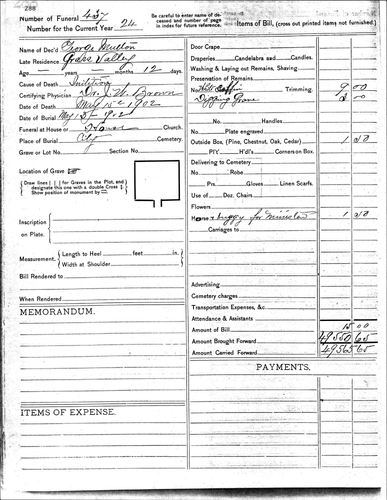 288
Number of Funeral 437
Number for the Current Year 24
Be careful to enter name of deceased and number of page in index for future reference.
Items of Bill, (cross out printed items not furnished.)
Name of Dec'd George
Late Residence Grass Valley
Age — years months 12 days.
Cause of Death Inanition
Certifying Physician Dr. J. W. Brown
Date of Death May 15th 1902
Date of Burial May 15th 1902
Funeral at House or Home Church.
Place of Burial City Cemetery.
Grave or Lot No. Section No.
Location of Grave
(Draw lines [ ] for Graves in the Plot, and designate this one with a double Cross. Show position of monument by )
Inscription on Plate.
Measurement. Length to Heel feet in.
Width at Shoulder
Bill Rendered to
When Rendered
MEMORANDUM.
ITEMS OF EXPENSE.
Door Crape
Draperies Candelabra and Candles.
Washing & Laying out Remains, Shaving
Preservation of Remains
No. White Coffin Trimming. 9 00
Digging Grave
No. Handles
Plate engraved
Outside Box, (Pine, Chestnut, Oak, Cedar)
P'I'Y H'd'l's Corners on Box.
Delivering to Cemetery
No. Robe
Prs. Gloves Linen Scarfs.
Use of Doz. Chairs
Flowers
Horse & buggy for Minister
Carriages to
Advertising
Cemetery charges
Transportation Expenses, &c.
Attendance & Assistants
Amount of Bill 15 00
Amount Brought Forward 49550 65
Amount Carried Forward 49565 65
PAYMENTS.